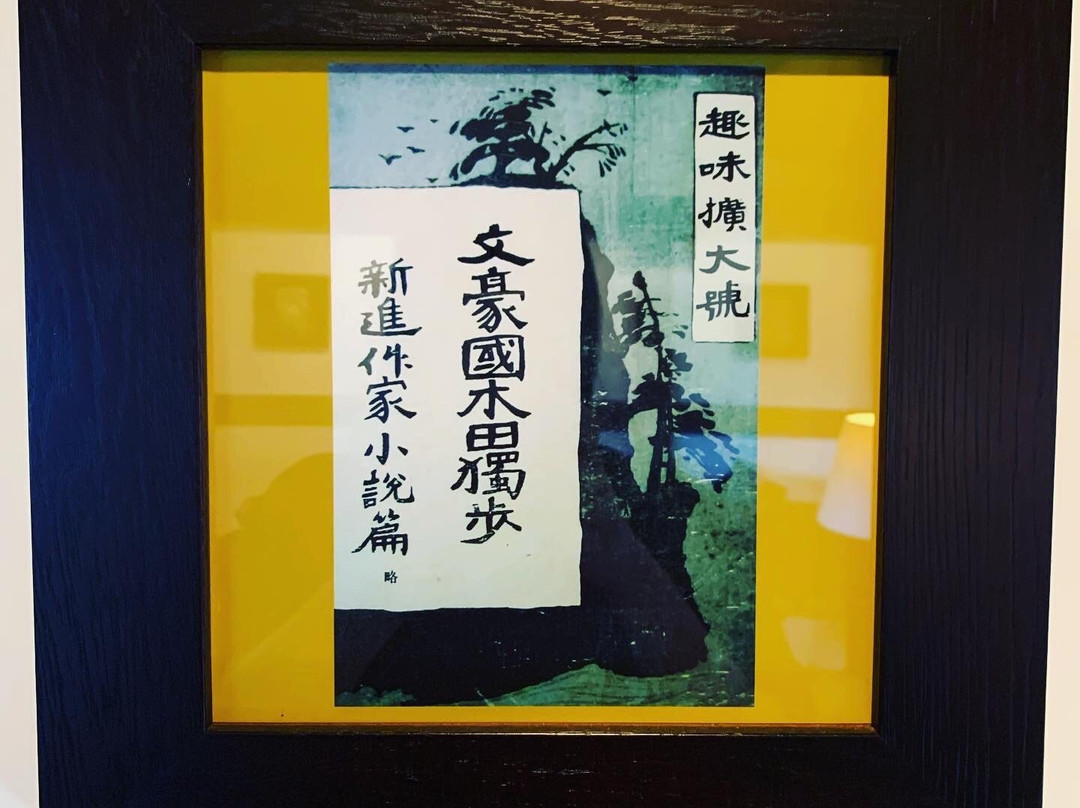 趣味擴大號
文豪國木田獨歩
新進作家小説篇
略